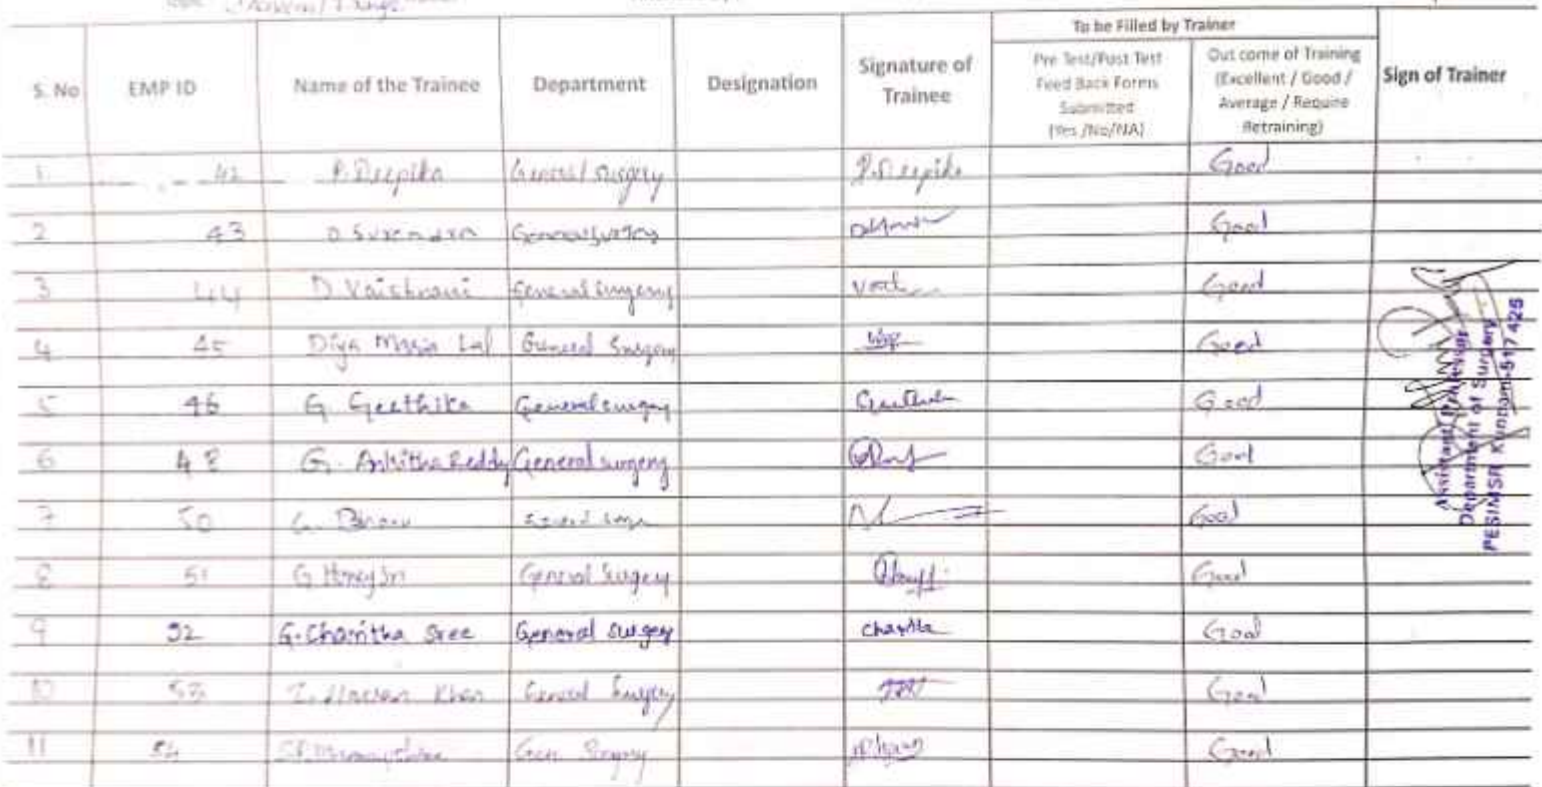 To be Filled by Trainer
S. No EMP ID Name of the Trainee Department Designation Signature of Trainee Pre Test/Post Test Feed Back Forms Submitted (Yes /No/NA) Out come of Training (Excellent / Good / Average / Require Retraining) Sign of Trainer
1 42 P. Deepika General Surgery P. Deepika Good
2 43 D Surendra General Surgery Good
3 44 D. Vaishnavi General Surgery Good
4 45 Diya Maria Lal General Surgery Good
5 46 G. Geethika General surgery Good
6 48 G. Ankitha Reddy General surgery Good
7 50 G. Good
8 51 General Surgery Good
9 52 G. Charitha Sree General Surgery Charitha Good
10 53 Khan General Surgery Good
11 54 Gen. Surgery Good
Assistant Professor
Department of Surgery
PESIMSR Kuppam-517 425